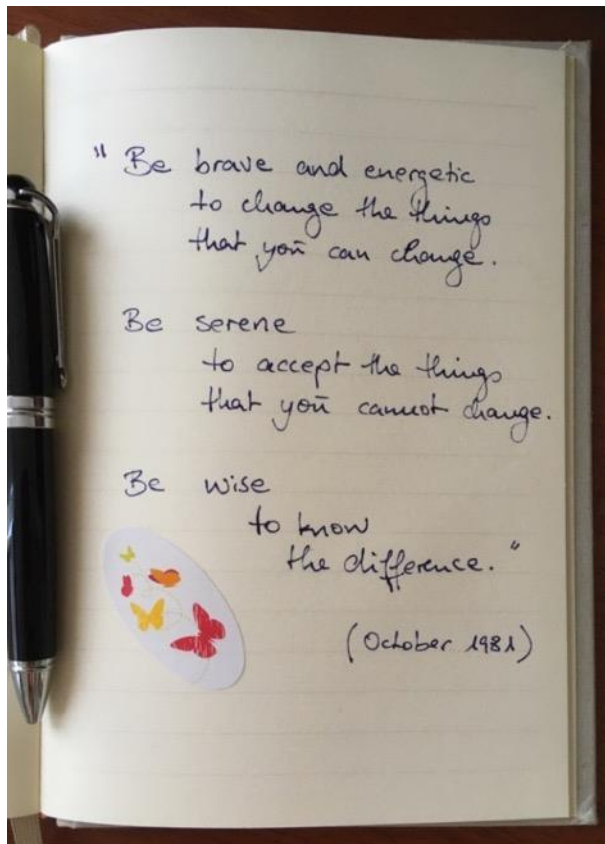 " Be brave and energetic
to change the things
that you can change.
Be serene
to accept the things
that you cannot change.
Be wise
to know
the difference."
(October 1981)